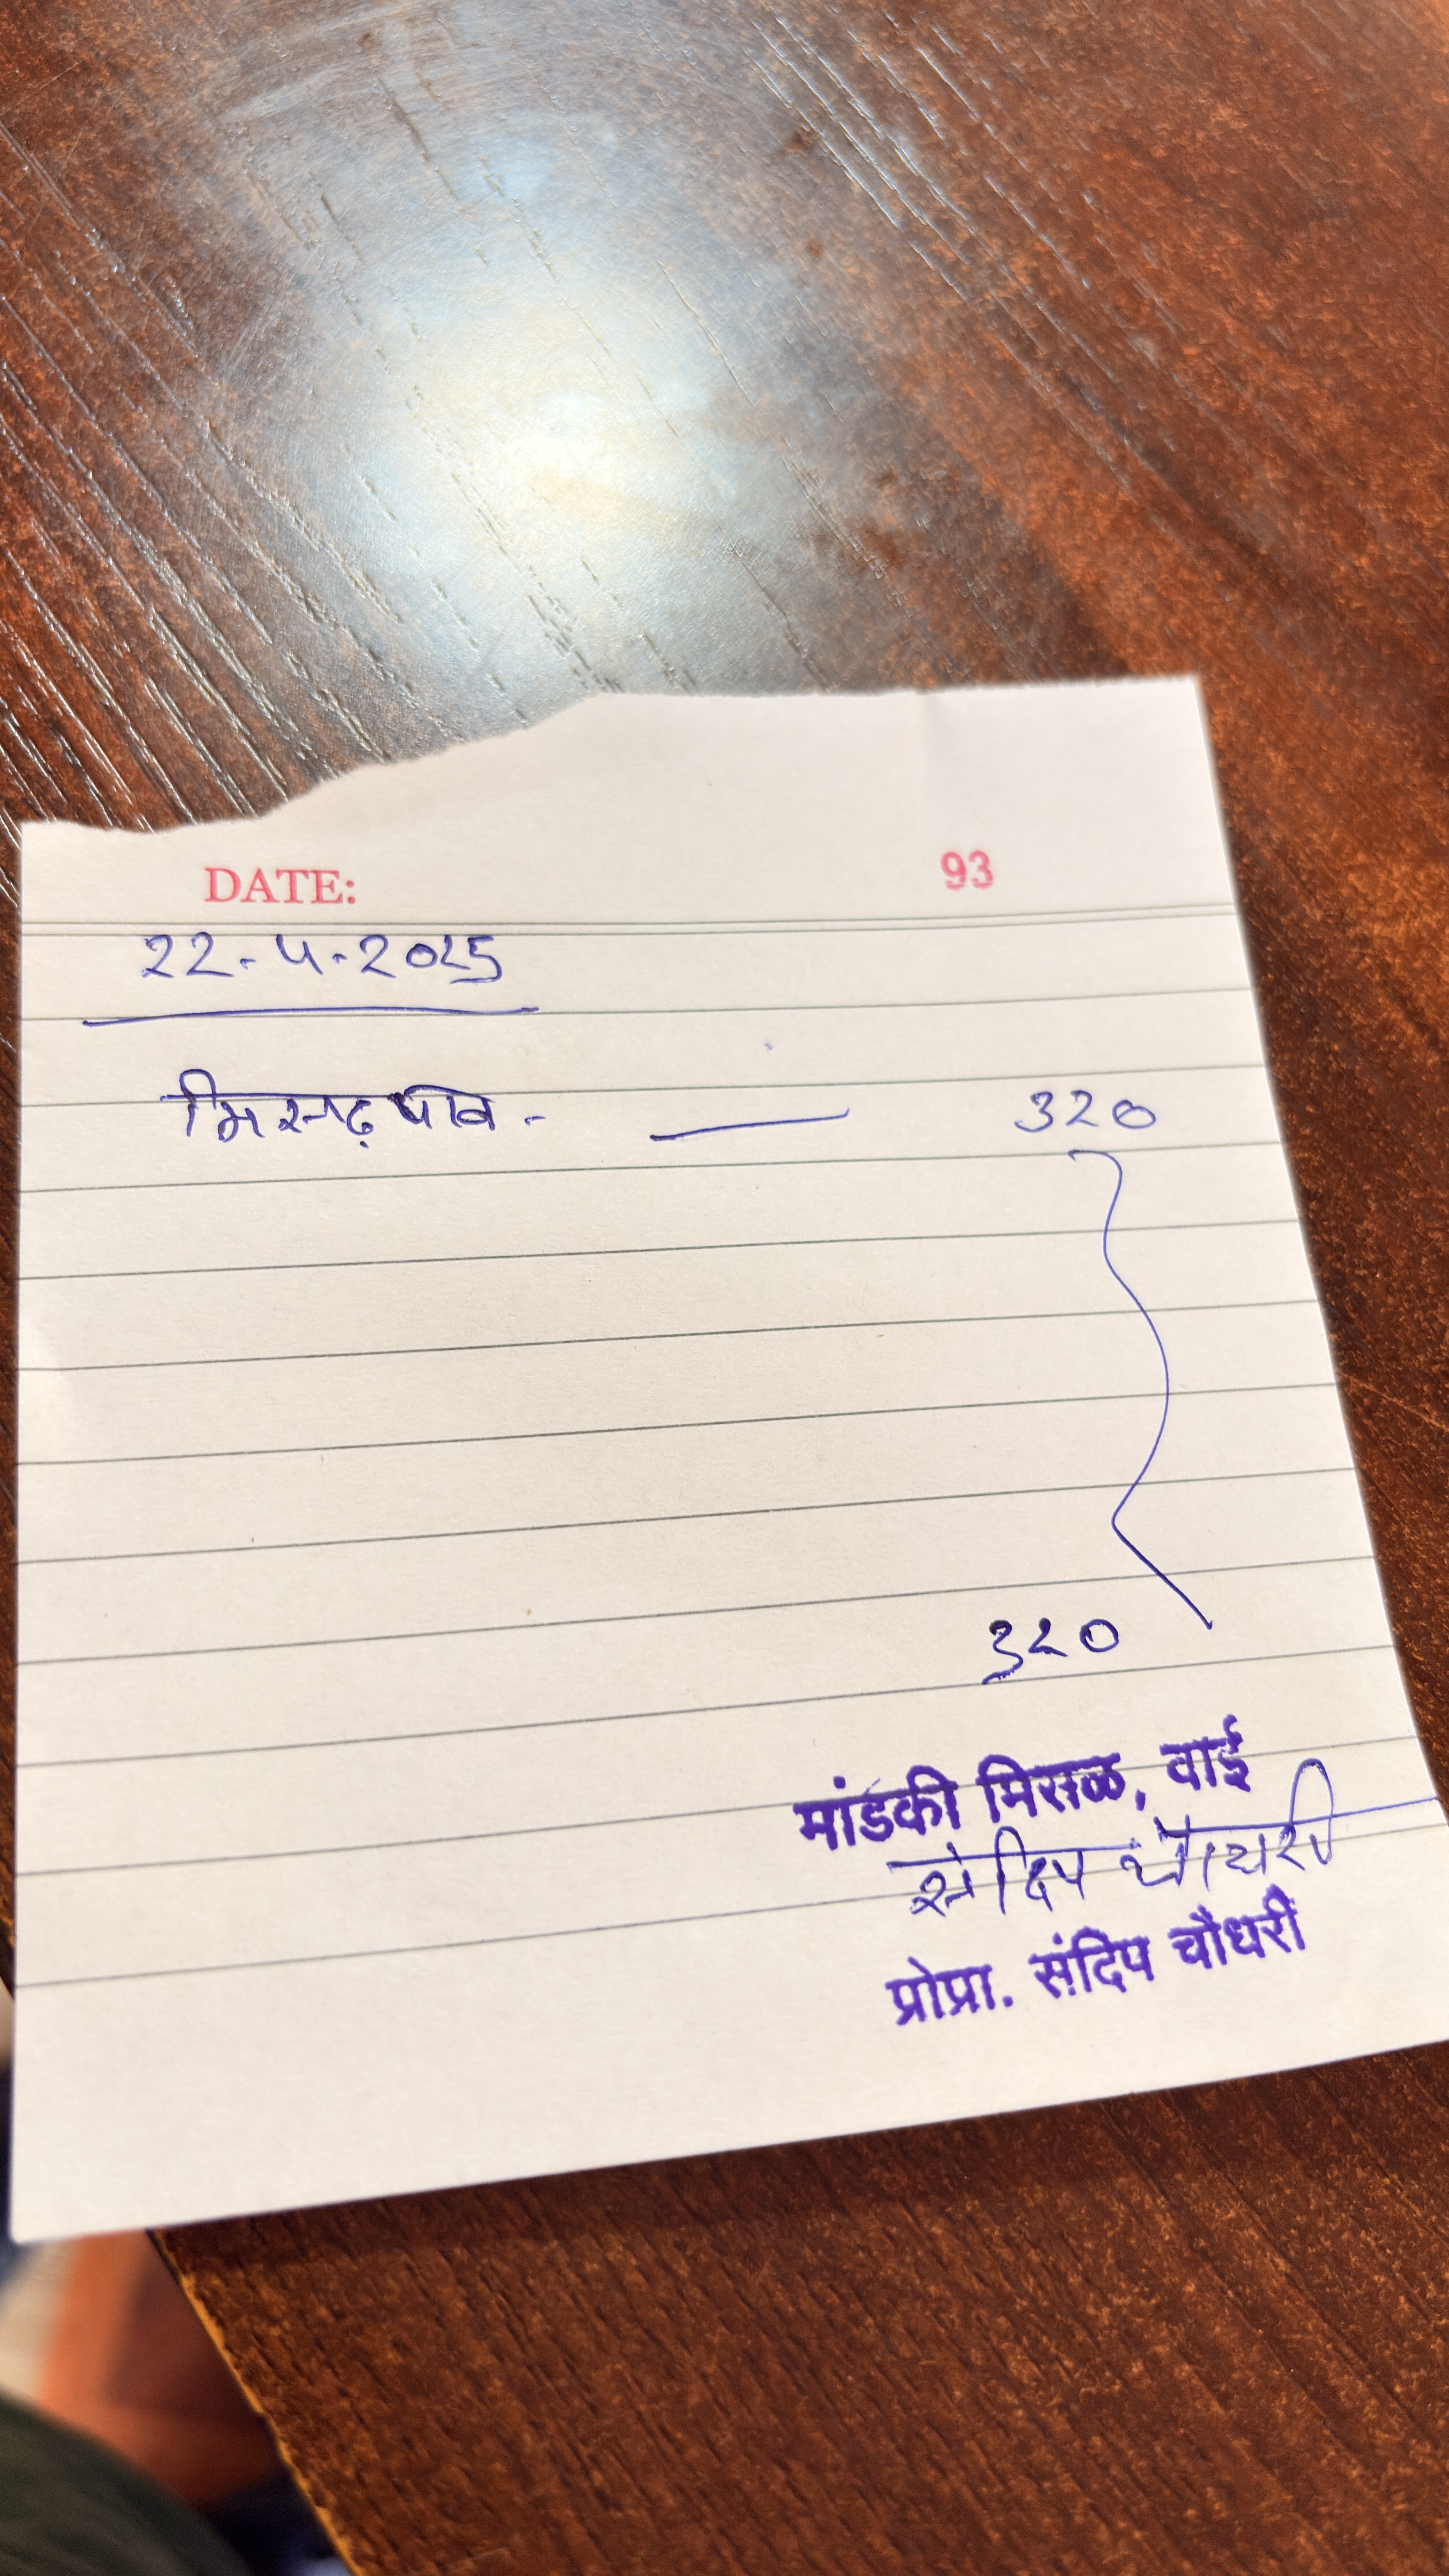 DATE: 93
22-4-2025
मिसळ पाव - — 320
320
मांडकी मिसळ, वाई
संदिप चौधरी
प्रोप्रा. संदिप चौधरी